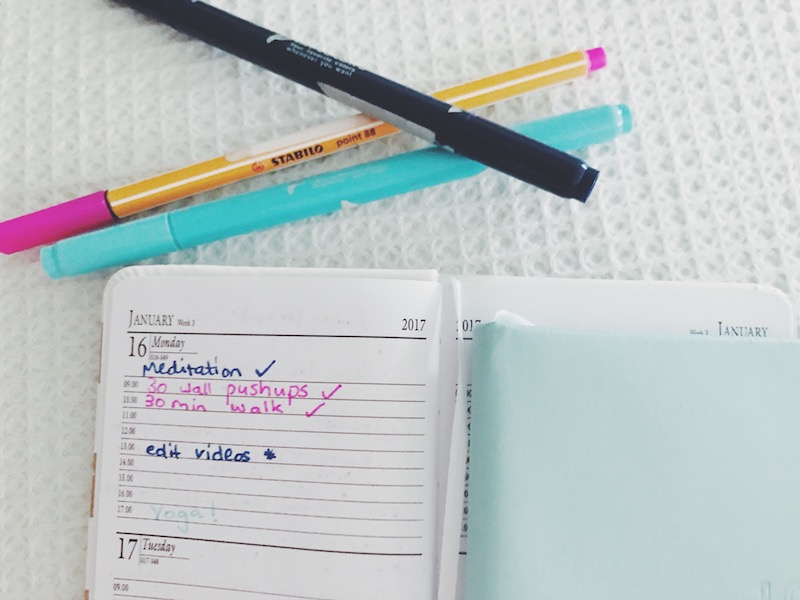 your favorite colors
whenever you want
STABILO point 88
JANUARY Week 3 2017
16 Monday
016-349
Meditation ✓
09.00 30 wall pushups ✓
10.00 30 min walk ✓
11.00
12.00
13.00 edit videos *
14.00
15.00
16.00
17.00 Yoga!
17 Tuesday
017-348
09.00
2017 Week 3 JANUARY